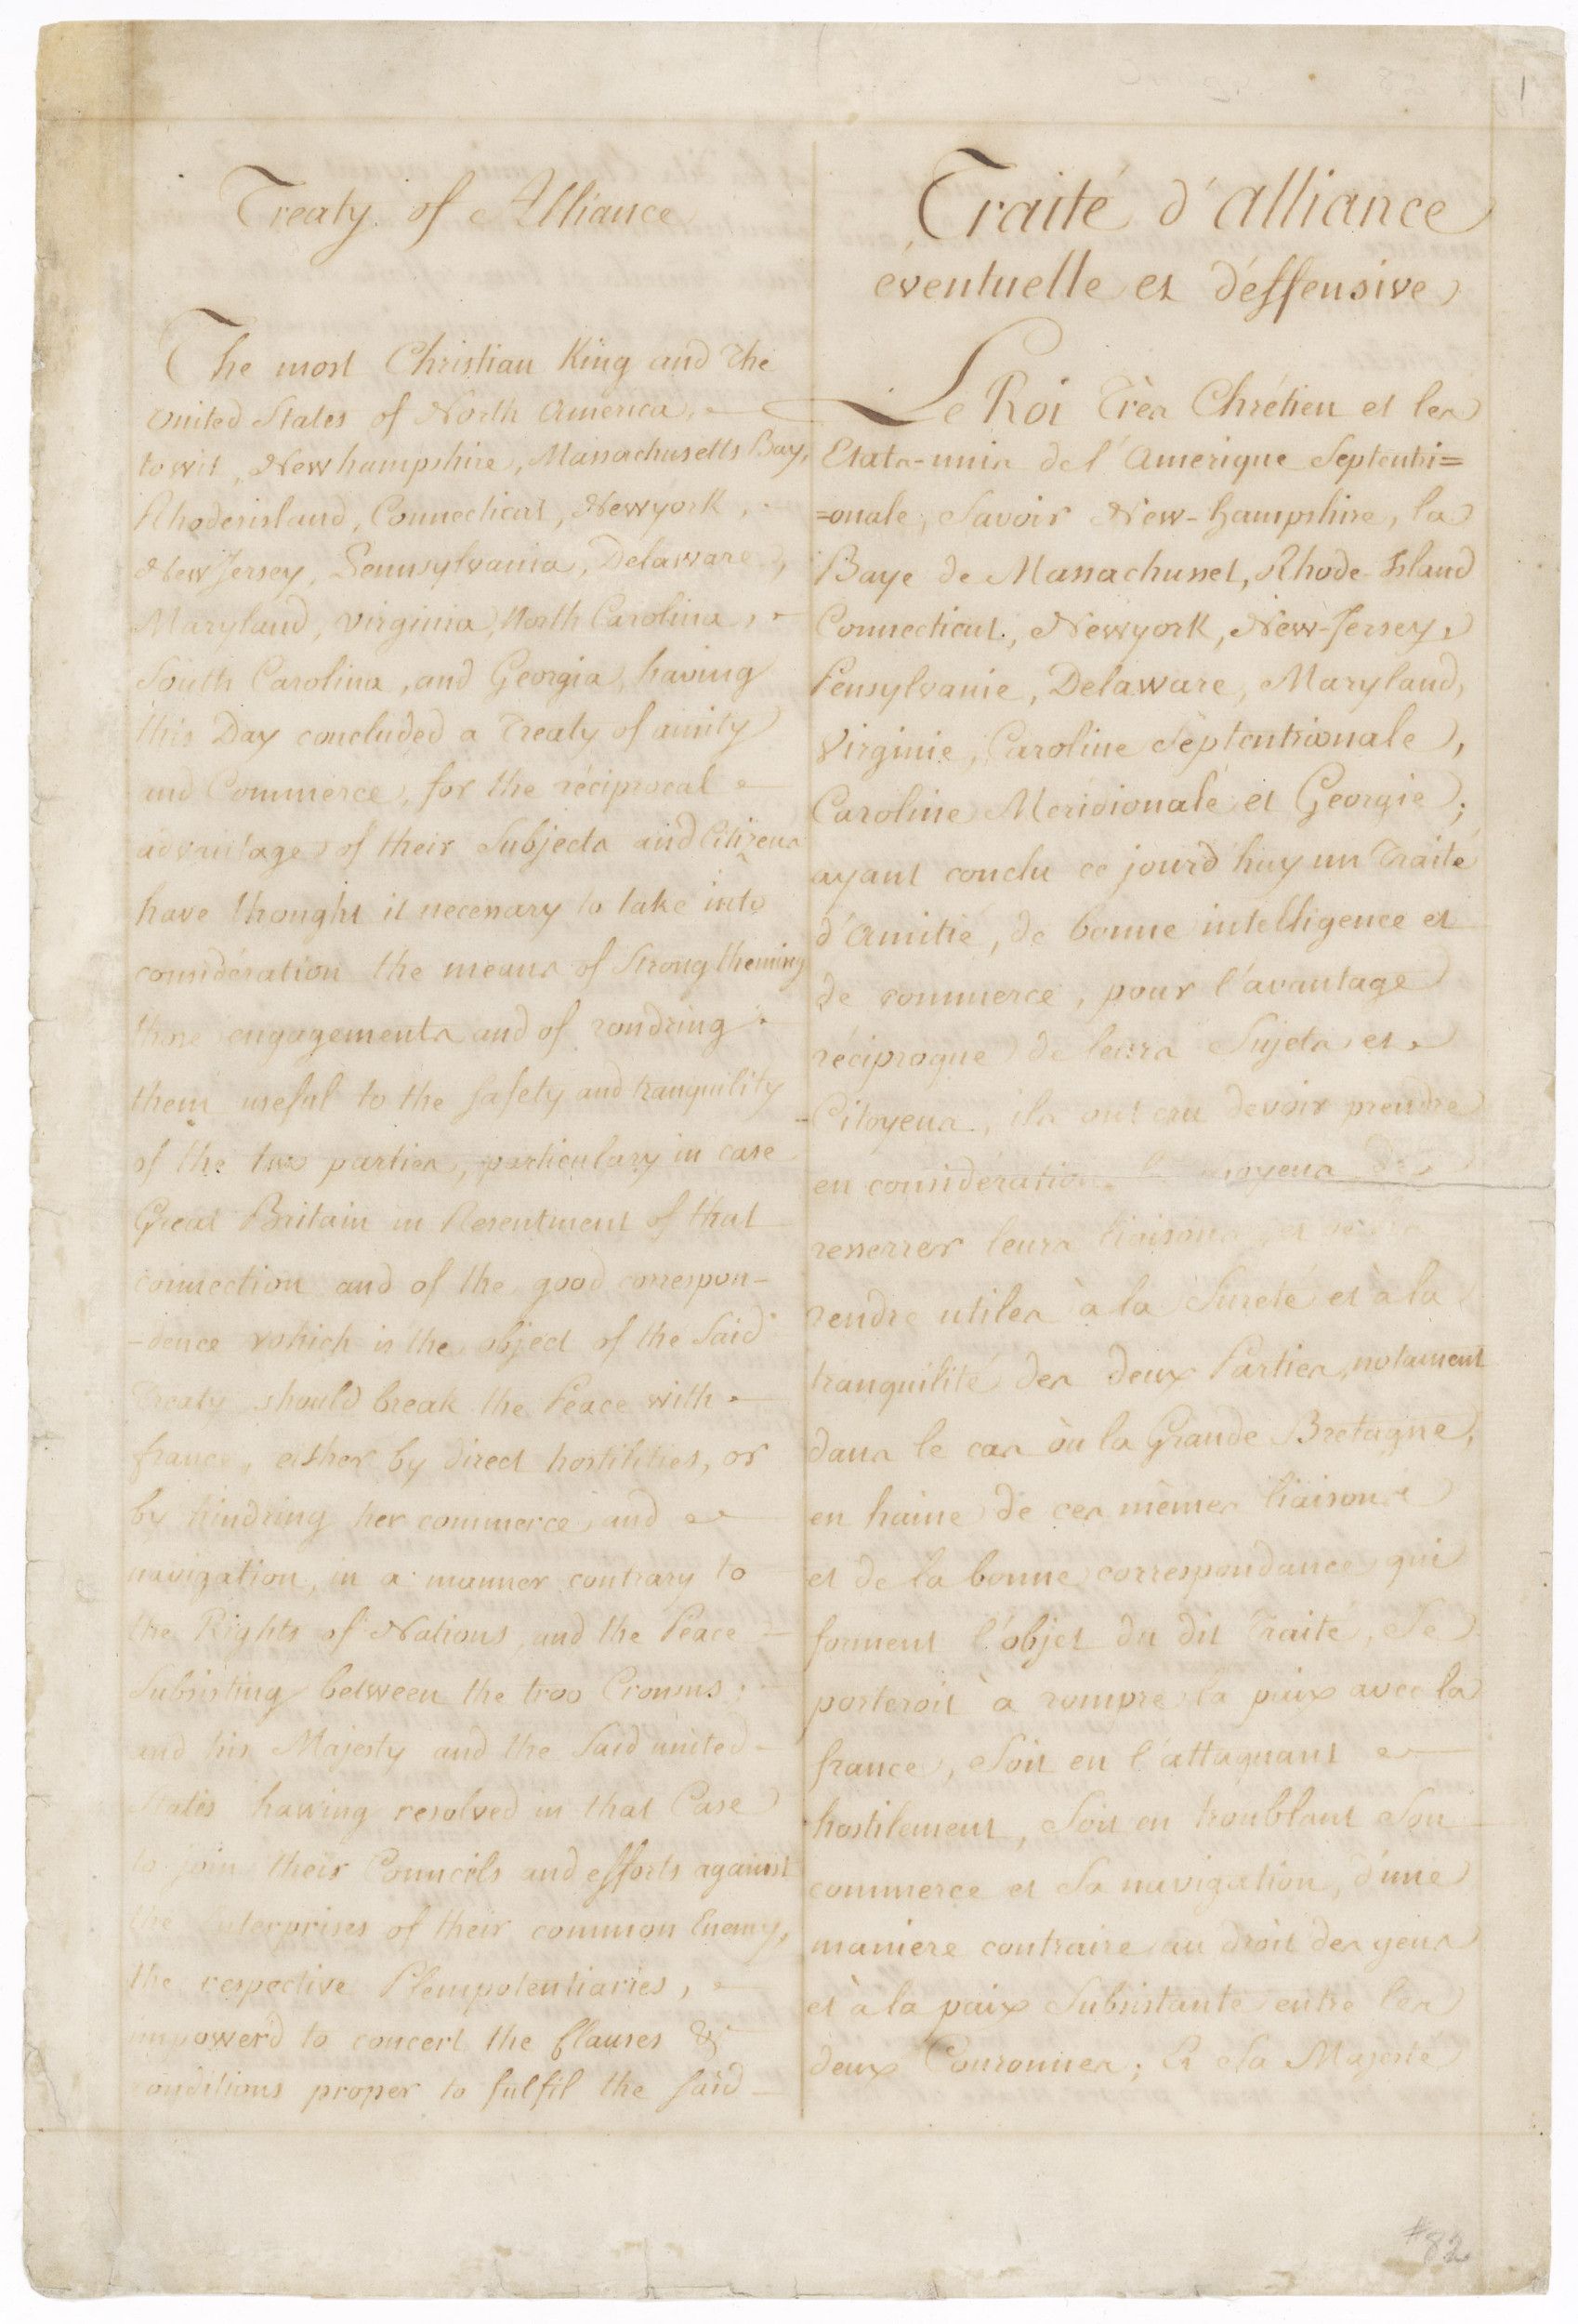 1
Treaty of Alliance
The most Christian King and the
united States of North America,
to wit, Newhampshire, Massachusetts Bay,
Rhodesisland, Connecticut, Newyork,
New Jersey, Pennsylvania, Delaware,
Maryland, virginia, North Carolina,
South Carolina, and Georgia, having
this Day concluded a Treaty of amity
and Commerce, for the réciprocal
advantage of their Subjects and Citizens
have thought it necessary to take into
considération the means of Strongthening
those engagements and of rondring
them useful to the safety and tranquility
of the two parties, particulary in case
Great Britain in Resentment of that
connection and of the good correspon-
-dence which is the object of the Said
Treaty should break the Peace with
france, either by direct hostilities, or
by hindring her commerce and
navigation, in a manner contrary to
the Rights of Nations, and the Peace
Subsisting between the two Crowns;
and his Majesty and the Said united
States having resolved in that Case
to join their Councils and efforts against
the enterprises of their common Enemy,
the respective Plenipotentiaries,
impower'd to concert the Clauses &
conditions proper to fulfil the said
Traité d'alliance
éventuelle et déffensive
Le Roi Très Chrétien et les
Etats-unis de l'Amerique Septentri=
=onale, Savoir New-hampshire, la
Baye de Massachusset, Rhode-Island
Connecticut, Newyork, New-Jersey,
Pensylvanie, Delaware, Maryland,
Virginie, Caroline Septentrionale,
Caroline Meridionale et Georgie;
ayant conclu ce jourd'huy un Traité
d'Amitié, de bonne intelligence et
de commerce, pour l'avantage
réciproque de leurs Sujets et
Citoyens, ils ont cru devoir prendre
en considération moyens de
resserrer leurs liaisons et
rendre utiles à la Sureté et à la
tranquilité des deux Parties, notament
dans le cas où la Grande Bretagne,
en haine de ces mêmes liaisons
et de la bonne correspondance qui
forment l'objet du dit Traité, Se
porteroit à rompre la paix avec la
france, Soit en l'attaquant
hostilement, Soit en troublant Son
commerce et Sa navigation, d'une
maniere contraire au droit des gens
et à la paix Subsistante entre les
deux Couronnes; Et Sa Majesté
#82